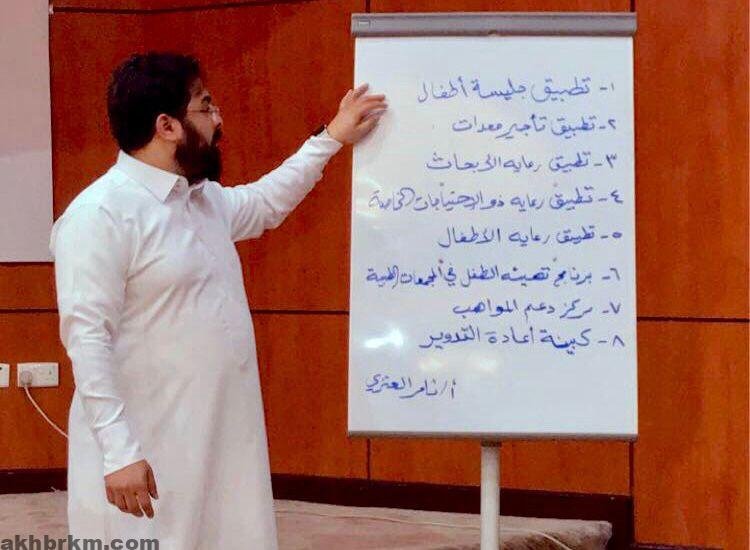 ١- تطبيق جليسة أطفال
٢- تطبيق تأجير معدات
٣- تطبيق رعايه الابحاث
٤- تطبيق رعايه ذو الاحتياجات الخاصة
٥- تطبيق رعايه الاطفال
٦- برنامج تهيئه الطفل في المجمعات الطبية
٧- مركز دعم المواهب
٨- كبينة أعادة التدوير
أ/ ثامر العنزي
akhbrkm.com